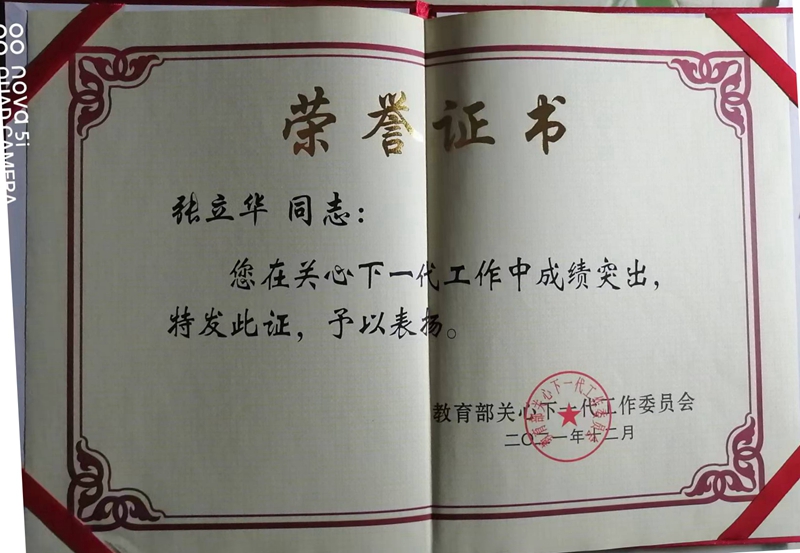 荣誉证书
张立华 同志：
您在关心下一代工作中成绩突出，
特发此证，予以表扬。
教育部关心下一代工作委员会
二〇二一年十二月
教育部关心下一代工作委员会
nova 5i
QUAD CAMERA